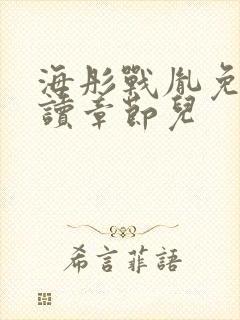 海彤戰胤免
讀章節兒
希言菲語